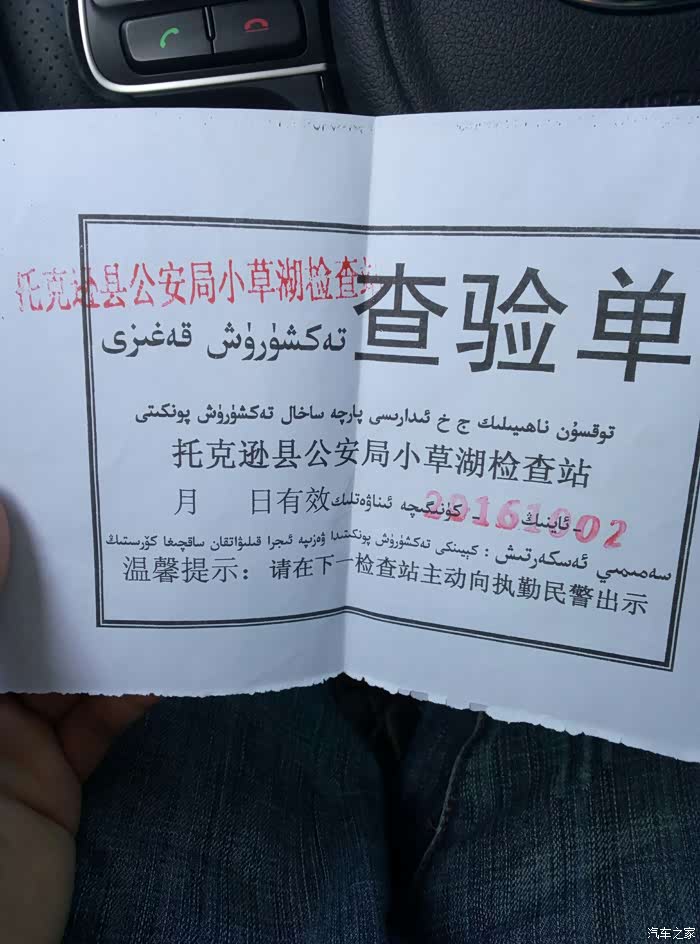 托克逊县公安局小草湖检查站
查验单
تەكشۈرۈش قەغىزى
توقسۇن ناھىيىلىك ج خ ئىدارىسى پارچە ساخال تەكشۈرۈش پونكىتى
托克逊县公安局小草湖检查站
月 日有效
ـ ئاينىڭ ـ كۈنىگىچە ئىناۋەتلىك
20161002
سەمىمىي ئەسكەرتىش : كېيىنكى تەكشۈرۈش پونكىتىدا ۋەزىپە ئىجرا قىلىۋاتقان ساقچىغا كۆرسىتىڭ
温馨提示：请在下一检查站主动向执勤民警出示
汽车之家